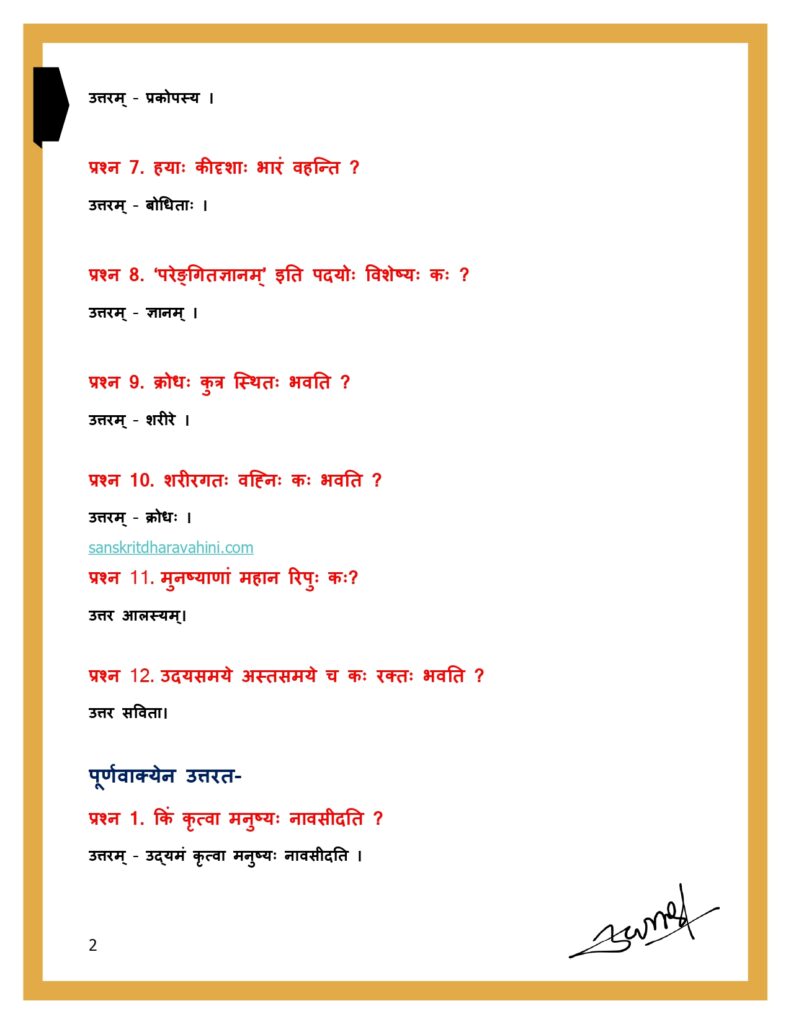 उत्तरम् - प्रकोपस्य ।
प्रश्न 7. हयाः कीदृशाः भारं वहन्ति ?
उत्तरम् - बोधिताः ।
प्रश्न 8. ‘परेङ्गितज्ञानम्’ इति पदयोः विशेष्यः कः ?
उत्तरम् - ज्ञानम् ।
प्रश्न 9. क्रोधः कुत्र स्थितः भवति ?
उत्तरम् - शरीरे ।
प्रश्न 10. शरीरगतः वह्निः कः भवति ?
उत्तरम् - क्रोधः ।
sanskritdharavahini.com
प्रश्न 11. मुनष्याणां महान रिपुः कः?
उत्तर आलस्यम्।
प्रश्न 12. उदयसमये अस्तसमये च कः रक्तः भवति ?
उत्तर सविता।
पूर्णवाक्येन उत्तरत-
प्रश्न 1. किं कृत्वा मनुष्यः नावसीदति ?
उत्तरम् - उद्यमं कृत्वा मनुष्यः नावसीदति ।
2